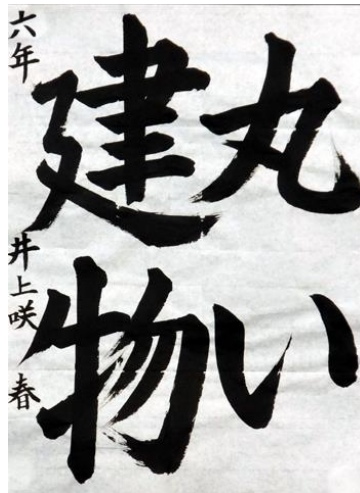 丸い
建物
六年 井上咲春